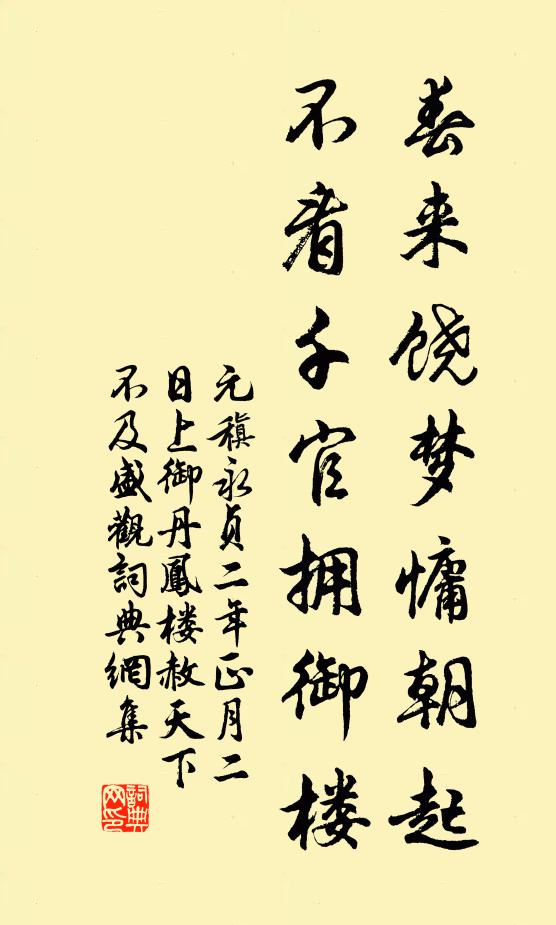 春来饶梦慵朝起
不看千官拥御楼
元稹永贞二年正月二
日上御丹鳳楼赦天下
不及盛觀詞典網集
詞典
网印